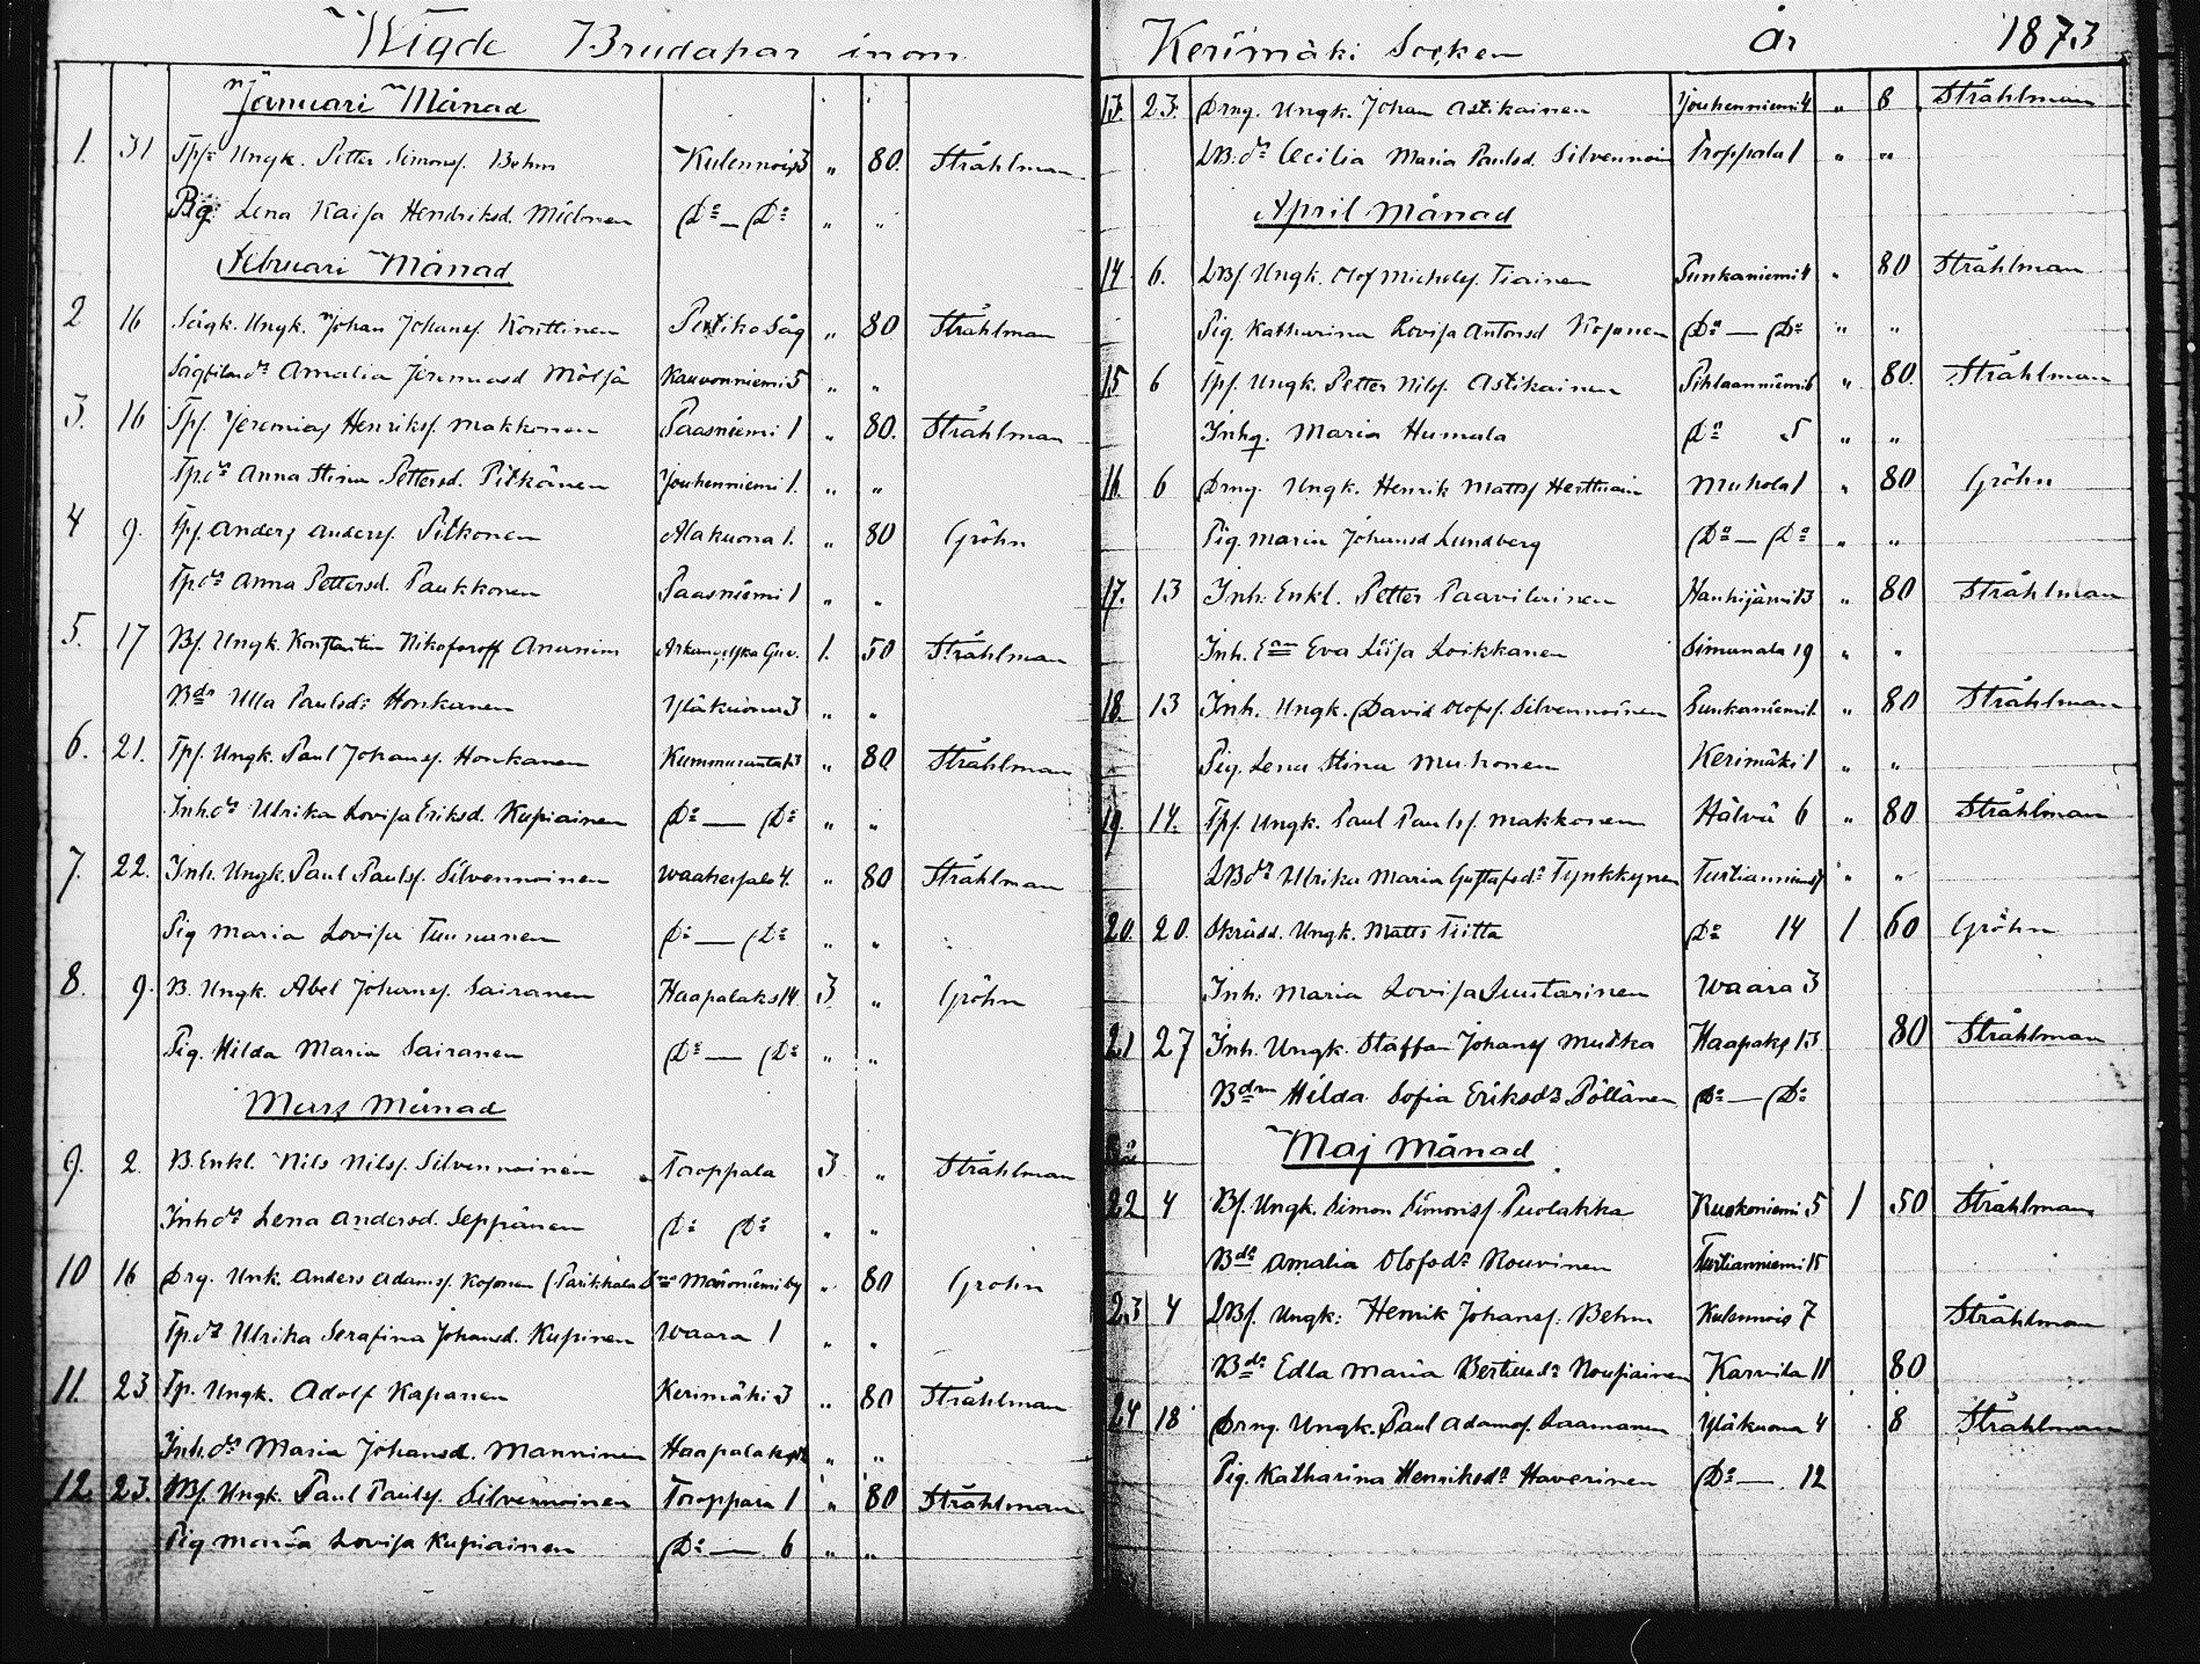 Wigde Brudapar inom
Januari Månad
1. 31 Tpfs Ungk. Petter Simonsf. Behm Kulennois 3 „ 80. Stråhlman
Pig. Lena Kaisa Hendriksd. Mielonen Do — Do „ „
Februari Månad
2 16 Sågk. Ungk. Johan Johansf. Konttinen Såg „ 80 Stråhlman
Amalia Jeremiasd Möljä Kauvonniemi 5 „ „
3. 16 Tpf. Jeremias Henriksf. Makkonen Paasniemi 1 „ 80. Stråhlman
Tp.dr Anna Stina Pettersd. Pitkänen Jouhenniemi 1. „ „
4 9. Tpf. Anders Andersf. Pitkonen Alakuona 1. „ 80 Gröhn
Tp.dr Anna Pettersd. Paukkonen Paasniemi 1 „ „
5. 17 Bf. Ungk. Konstantin Nikoforoff Ananin Arkangelska Guv. 1. 50 Stråhlman
Bdr Ulla Paulsdr Honkanen Yläkuona 3 „ „
6. 21. Tpf. Ungk. Paul Johansf. Honkanen Kummuranta 13 „ 80 Stråhlman
Inh.dr Ulrika Lovisa Eriksd. Kupiainen Do — Do „ „
7. 22. Inh. Ungk. Paul Paulsf. Silvennoinen Waahersalo 4. „ 80 Stråhlman
Pig Maria Lovisa Tuunanen Do — Do „ „
8. 9. B. Ungk. Abel Johansf. Sairanen Haapalaks 14. 3 „ Gröhn
Pig. Hilda Maria Sairanen Do — Do „ „
Mars Månad
9. 2 B. Enkl. Nils Nilsf. Silvennoinen Toroppala 3 „ Stråhlman
Inhdr Lena Andersd. Seppänen Do Do „ „
10 16 Drg. Unk. Anders Adamsf. Kosonen (Parikkala Sn Mäntöniemi by „ 80 Gröhn
Tp.dr Ulrika Serafina Johansd. Kupinen Waara 1 „ „
11. 23 Tp. Ungk. Adolf Kapanen Kerimäki 3 „ 80 Stråhlman
Inh.dr Maria Johansd. Manninen „ „
12. 23. Bf. Ungk. Paul Paulsf. Silvennoinen Toroppala 1 „ 80 Stråhlman
Pig Maria Lovisa Kupiainen Do — 6 „ „
Kerimäki Socken År 1873
13. 23. Drng. Ungk. Johan Astikainen Jouhenniemi 4 „ 8 Stråhlman
LB:dr Cecilia Maria Paulsd. Silvennoin Troppala 1 „ „
April Månad
14 6. LBf. Ungk. Olof Michelsf. Tiainen Punkaniemi 4 „ 80 Stråhlman
Pig. Katharina Lovisa Antonsd Kosonen Do — Do „ „
15 6 Tpf. Ungk. Petter Nilsf. Astikainen Pihlaanniemi 6 „ 80. Stråhlman
Inhq. Maria Humala Do 5 „ „
16. 6 Drng. Ungk. Henrik Mattsf Herttuain Muhola 1 „ 80 Gröhn
Pig. Maria Johansd Lundberg Do — Do „ „
17. 13 Inh: Enkl. Petter Paavilainen Hanhijärvi 13 „ 80 Stråhlman
Inh. Ean Eva Liisa Loikkanen Simunala 19 „ „
18. 13 Inh. Ungk. David Olofsf. Silvennoinen Punkaniemi 1. „ 80 Stråhlman
Pig. Lena Stina Muhonen Kerimäki 1 „ „
19. 14. Tpf. Ungk. Paul Paulsf. Makkonen Hälvä 6 „ 80 Stråhlman
LBdr Ulrika Maria Gustafsdr Tynkkynen „ „
20. 20. Skrädd. Ungk. Matts Tiitta Do 14 1 60 Gröhn
Inh: Maria Lovisa Suutarinen Waara 3
21 27 Inh. Ungk. Staffan Johansf Mutka Haapaks 13 80 Stråhlman
Bdrn Hilda Sofia Eriksdr Pöllänen Do — Do
Maj Månad
22 4 Bf. Ungk. Simon Simonsf. Puolakka Ruokoniemi 5 1 50 Stråhlman
Bdr Amalia Olofsdr Nousinen Turtianniemi 15
23 4 LBf. Ungk: Henrik Johansf. Behm Kulennois 7 Stråhlman
Bdr Edla Maria Noupiainen Karvila 11 80
24 18 Drng. Ungk. Paul Adamsf. Laamanen Yläkuona 4 8 Stråhlman
Pig. Katharina Henriksdr Haverinen Do — 12